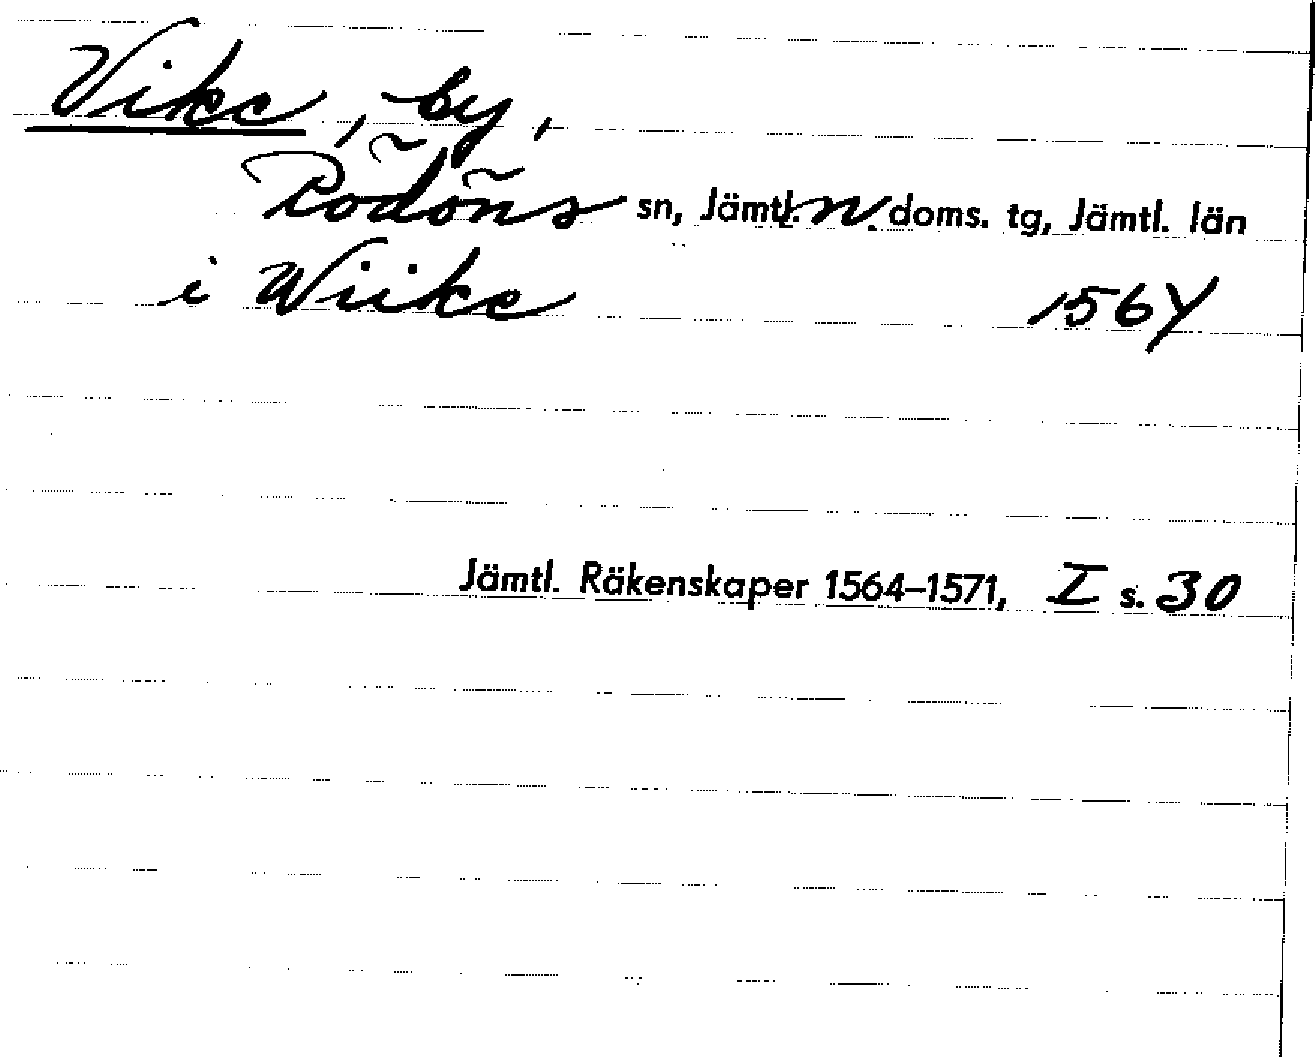 Vike, by,
Rödöns sn, Jämtl. n. doms. tg, Jämtl. län
i Wiike 1564
Jämtl. Räkenskaper 1564–1571, I s. 30